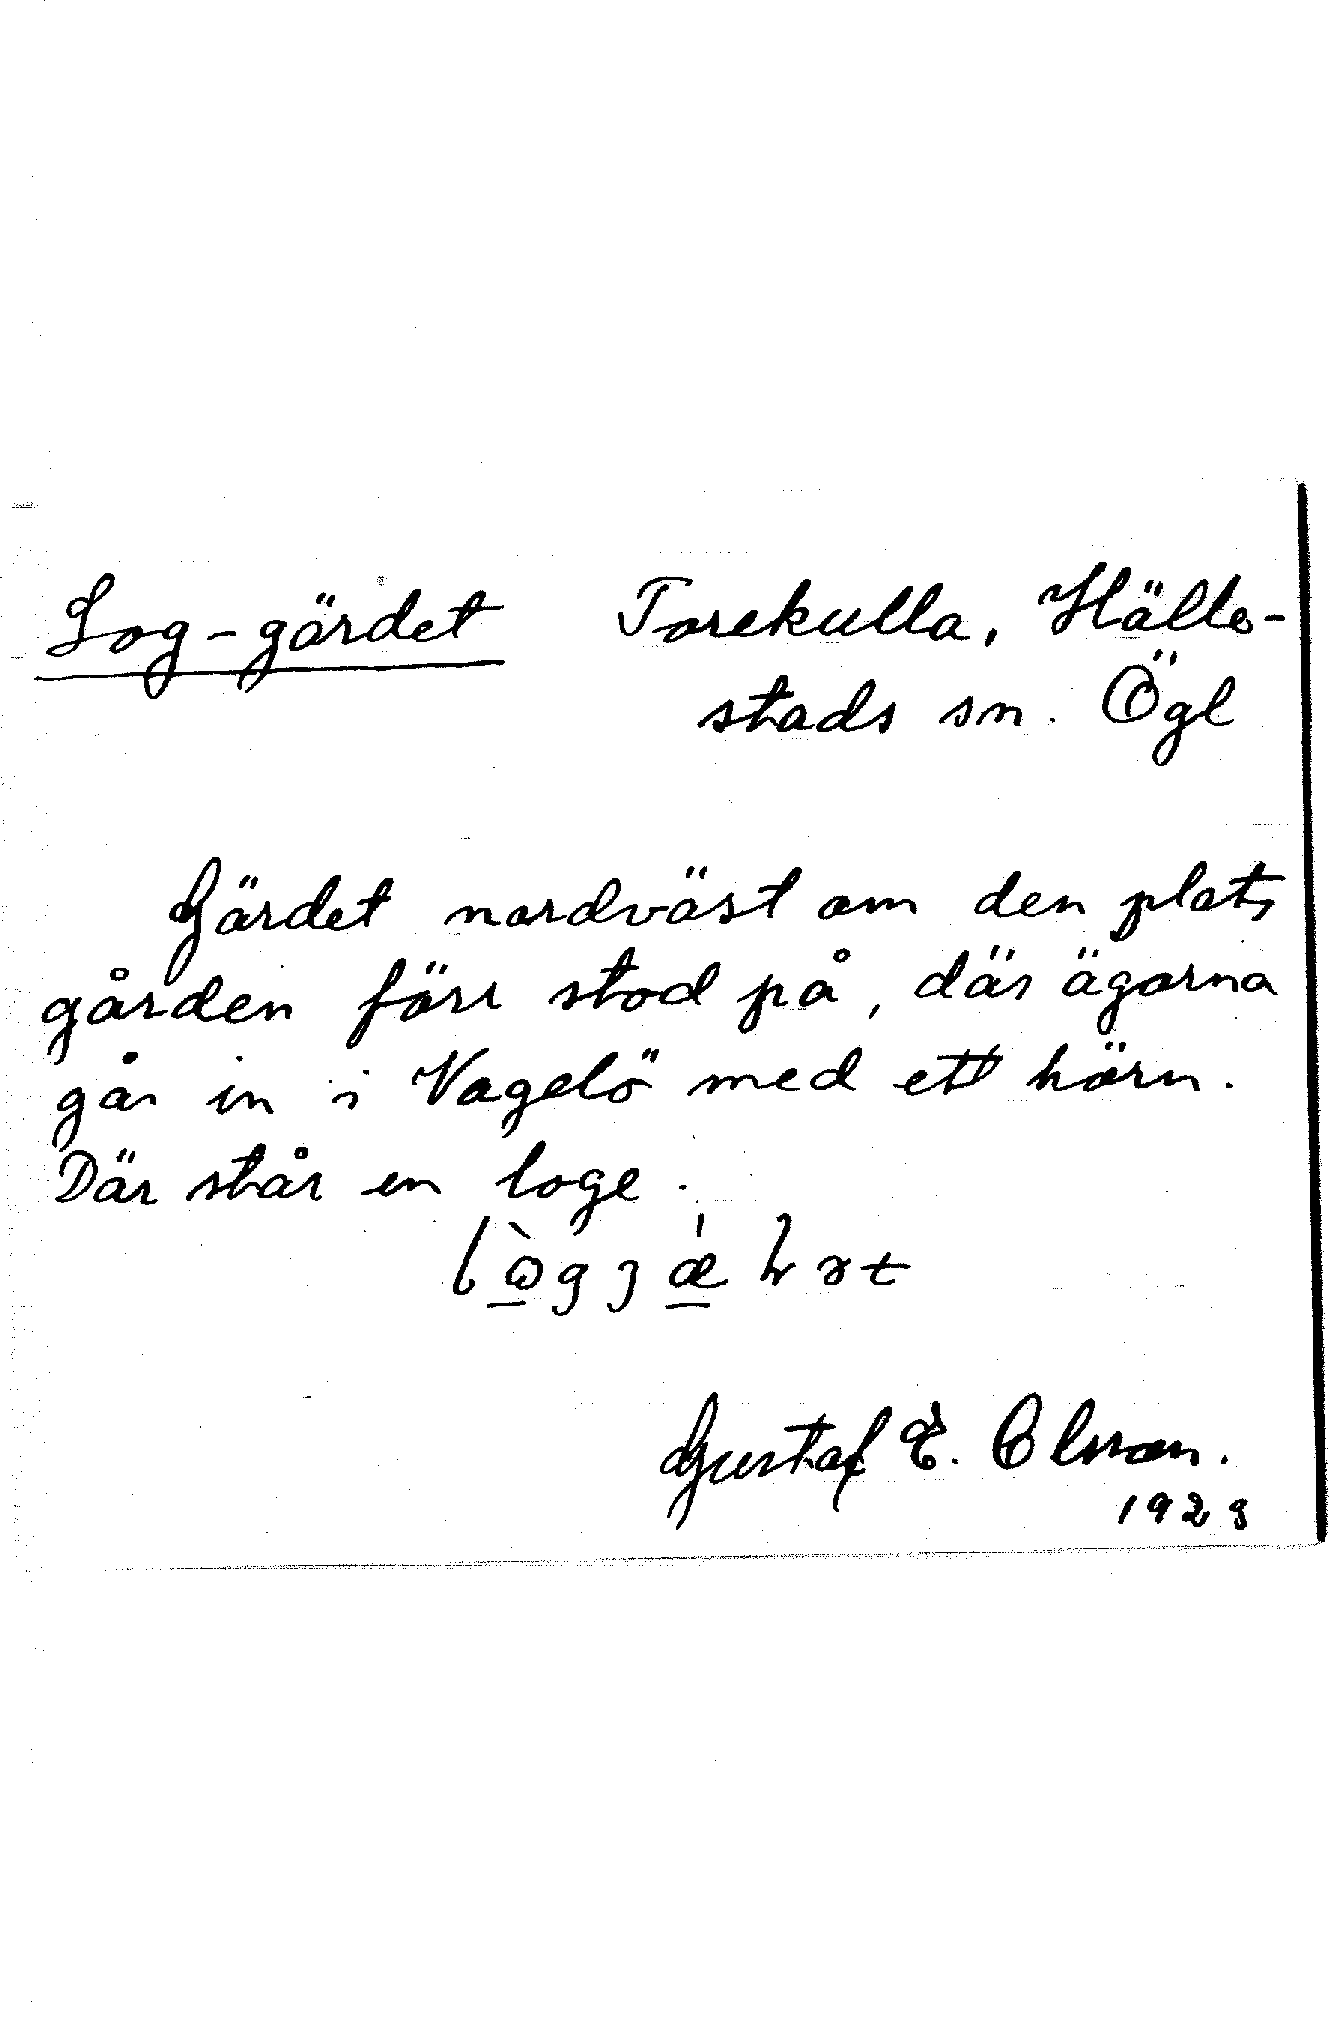 Log-gärdet Torekulla, Hälle-
stads sn. Ögl
Gärdet nordväst om den plats
gården förr stod på, där ägorna
går in i Vagelö med ett hörn.
Där står en loge.
Gustaf E. Olsson.
1929